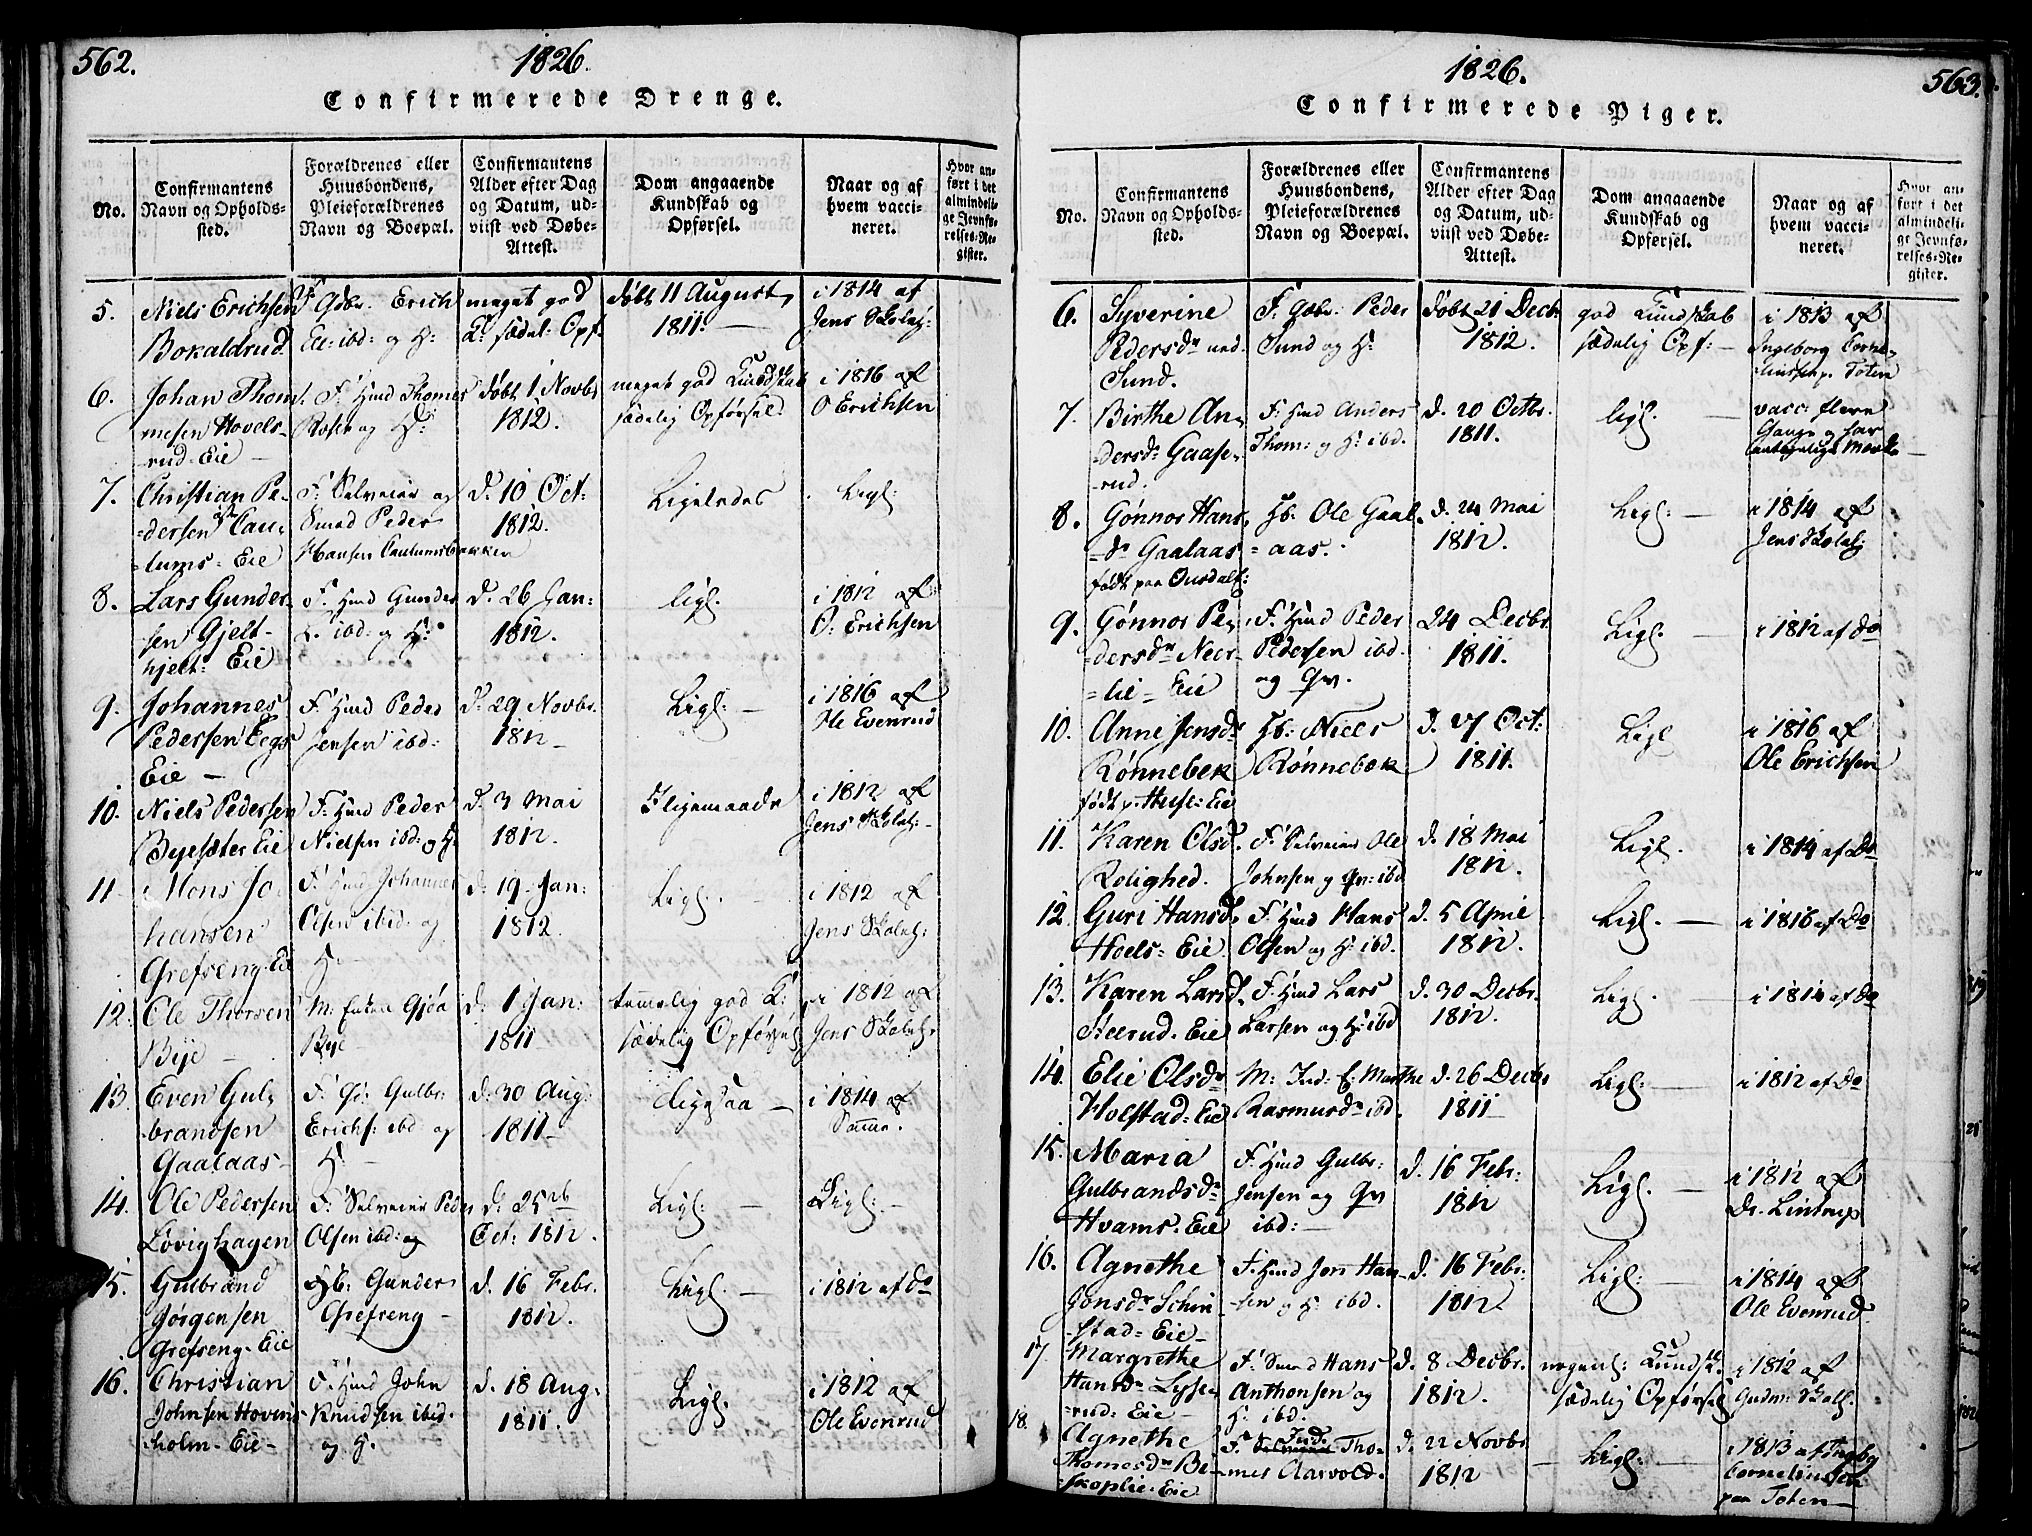 562.
1826.
Confirmerede Drenge.
No.
Confirmantens
Navn og Opholds-
sted.
Forældrenes eller
Huusbondens,
Pleieforældrenes
Navn og Boepæl.
Confirmantens
Alder efter Dag
og Datum, ud-
viist ved Døbe-
Attest.
Dom angaaende
Kundskab og
Opførsel.
Naar og af
hvem vacci-
neret.
Hvor an-
ført i det
almindeli-
ge Jevnfø-
relses-Re-
gister.
5.
Niels Erichsen
Bokaldrud
F. Gbr. Erich
Ell: ibd: og H:
meget god
K: sædel: Opf.
døbt 11 August
1811. —
i 1814 af
Jens Skoleh:
6.
Johan Thom-
mesen Hovels-
rud-Eie —
F. Hmd Thomes
og H:
døbt 1 Novbr
1812.
meget god Kundskab
sædelig Opførsel
i 1816 af
O Erichsen
7.
Christian Pe-
dersen
lums- Eie
F. Selveier og
Smed Peder
Hansen
d. 10 Oct:
1812.
Ligeledes
Ligl:
8.
Lars Gunder-
sen Gjelt-
hjelt: Eie
F. Hmd Gunder
L. ibd: og H:
d. 26 Jan:
1812.
ligl.
i 1812 af
O. Erichsen
9.
Johannes
Pedersen Eegs
Eie —
F. Hmd Peder
Jensen ibd:
d. 29 Novbr.
1812 —
Ligl: —
i 1816 af
Ole Evenrud
10.
Niels Pedersen
Byesæter Eie
F. Hmd Peder
Nielsen ibd: og H:
d. 3 Mai
1812.
Iligemaade
i 1812 af
Jens Skoleh: -
11
Mons Jo-
hansen
Grefseng-Eie
F. Hmd Johannes
Olsen ibid: og
H. —
d. 19 Jan:
1812.
Ligl. —
i 1812 af
Jens Skoleh:
12.
Ole Thorsen
Bye —
M: Enken Gjøa
Bye —
d. 1 Jan:
1811 —
temmelig god K:
sædelig Opførsel
i 1812 af
Jens Skoleh:
13.
Even Gul-
brandsen
Gaalaas —
F. Gbr: Gulbr:
Erichs: ibd og
H. —
d. 30 Aug:
1811 —
Ligesaa —
i 1814 af
Samme.
14.
Ole Pedersen
Løvighagen
F. Selveier Peder
Olsen ibd: og
d. 25
Oct: 1812.
Ligl: —
Ligl: —
15.
Gulbrand
Jørgensen
Grefseng-Eie
Hb: Gunder
Grefseng —
d. 16 Febr.
1812.
Ligl. —
i 1812 af do
16.
Christian
Johnsen Hovens-
holm-Eie —
F. Hmd John
Knudsen ibid.
og H.
d. 18 Aug.
1811.
Ligl.
i 1812 af
Ole Evenrud
1826.
563.
Confirmerede Piger.
No.
Confirmantens
Navn og Opholds-
sted.
Forældrenes eller
Huusbondens,
Pleieforældrenes
Navn og Boepæl.
Confirmantens
Alder efter Dag
og Datum, ud-
viist ved Døbe-
Attest.
Dom angaaende
Kundskab og
Opførsel.
Naar og af
hvem vacci-
neret.
Hvor an-
ført i det
almindeli-
ge Jevnfø-
relses-Re-
gister.
6.
Syverine
Pedersdr ned.
Sund.
F. Gbr: Peder
Sund og H:
døbt 21 Decbr
1812.
god Kundskab
sædelig Opf: —
i 1813 af
Ingeborg Corne-
liusen p. Toten
7.
Birthe An-
dersdr Gaasp-
rud.
F. Hmd Anders
Thom: og H: ibd.
d. 20 Octbr.
1811.
ligl. —
vacc: flere
Gange og har
antagelige Mærker
8.
Gønnor Hans-
dr Gaalaas
født paa
Hb. Ole Gaal-
aas.
d. 24 Mai
1812.
Ligl: —
i 1814 af
Jens Skoleh:
9.
Gønnor Pe-
dersdr Neer-
lie - Eie
F. Hmd Peder
Pedersen ibd.
og Qv.
24 Decbr.
1811.
Ligl. —
i 1812 af do
10.
Anne Jensdr
Rønnebek
født p. Huse: Eie
Hb: Niels
Rønnebek
d. 27 Oct:
1811.
Ligl
i 1816 af
Ole Erichsen
11.
Karen Olsd.
Rolighed.
F. Selveier Ole
Johnsen og Qv: ibd
d. 18 Mai
1812.
Ligl.
i 1814 af do
12.
Guri Hansd.
Hoels- Eie
F. Hmd Hans
Olsen og H: ibd.
d. 5 April
1812.
Ligl. —
i 1816 af do
13.
Karen Larsd.
Steerud-Eie
F. Hmd Lars
Larsen og H: ibd
d. 30 Decbr.
1812.
Ligl. —
i 1814 af do
14.
Elie Olsdr
Holstad: Eie
M: Ind: E: Marthe
Rasmusdr ibd.
d. 26 Decbr
1811 —
Ligl: —
i 1812 af do
15.
Maria
Gulbrandsdr
Hvams-Eie
F. Hmd Gulbr:
Jensen og Qv
ibd: —
d. 16 Febr:
1812
Ligl. —
i 1812 af
Dr. Lintrup
16.
Agnethe
Jonsdr Schiu-
stad- Eie —
F. Hmd Jon Han-
sen og H: ibd.
d. 16 Febr:
1812.
Ligl: —
i 1814 af
Ole Evenrud.
17.
Margrethe
Hansdr Lysse-
rud: Eie —
F. Smed Hans
Anthonsen og
H: ibd.
d. 8 Decbr.
1812.
Kundsk.
sædelig Opførsel
i 1812 af
Gudm: Skolh.
18.
Agnethe
Thomesdr Bi-
skoplie-Eie
F. Ind. Tho-
mes Aarvold.
d. 22 Novbr
1812
— Ligl: —
i 1813 af Ingbg
Corneliusen
paa Toten —